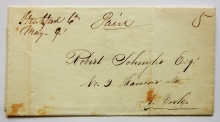 Stratford Ct
May 9
Paid
5
Robert Schuyler Esqr
No. 2 Hanover St
N. York